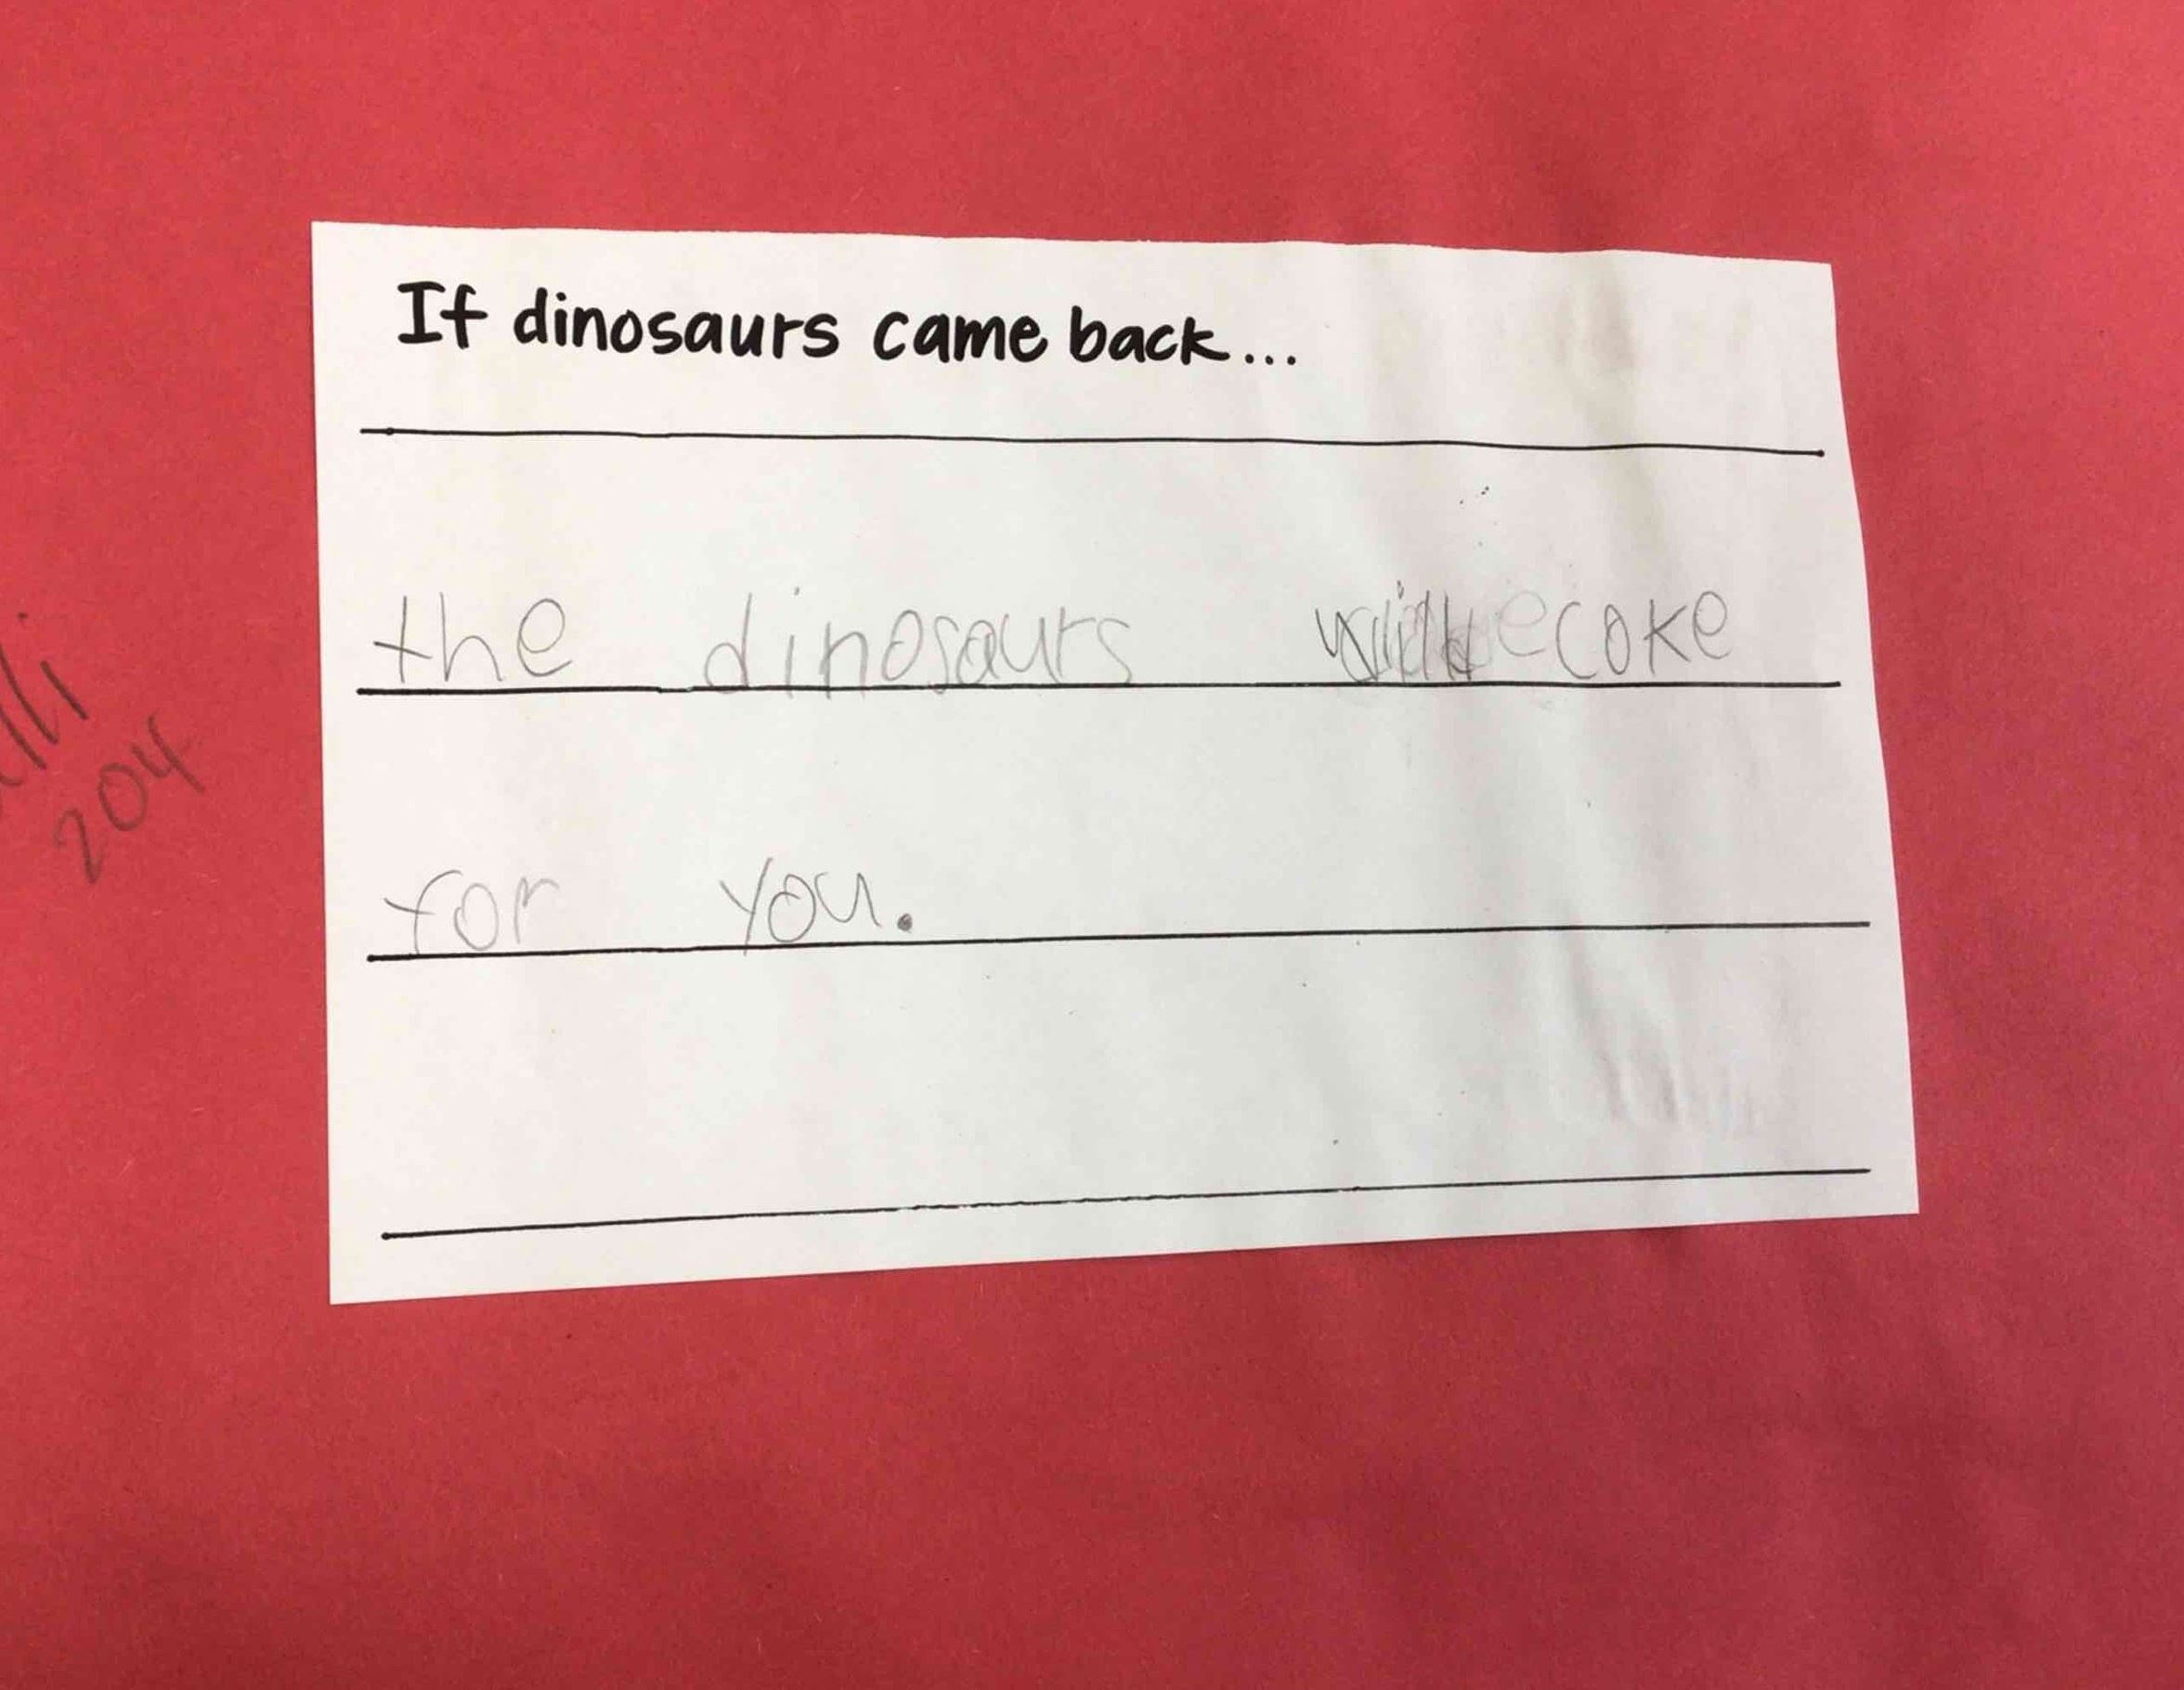 If dinosaurs came back...
the dinosaurs will coke
for you.
204